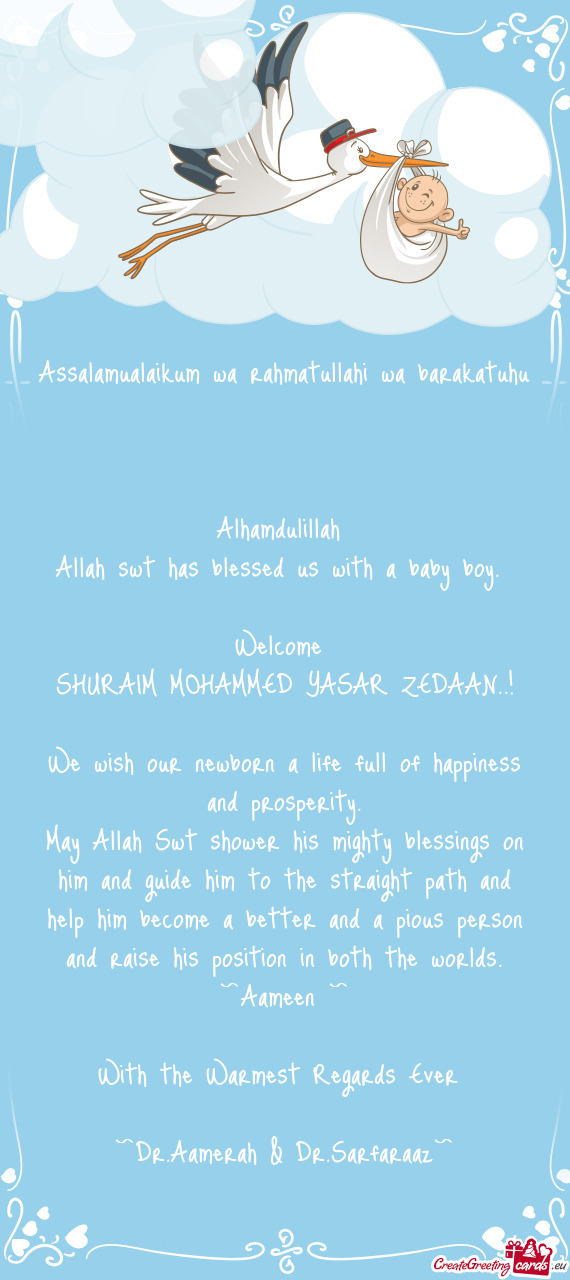 Assalamualaikum wa rahmatullahi wa barakatuhu
Alhamdulillah
Allah swt has blessed us with a baby boy.
Welcome
SHURAIM MOHAMMED YASAR ZEDAAN..!
We wish our newborn a life full of happiness
and prosperity.
May Allah Swt shower his mighty blessings on
him and guide him to the straight path and
help him become a better and a pious person
and raise his position in both the worlds.
~Aameen ~
With the Warmest Regards Ever
~Dr.Aamerah & Dr.Sarfaraaz~
CreateGreetingcards.eu